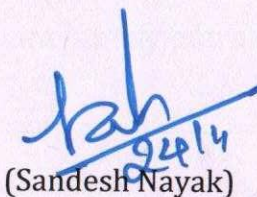 24/4
(Sandesh Nayak)